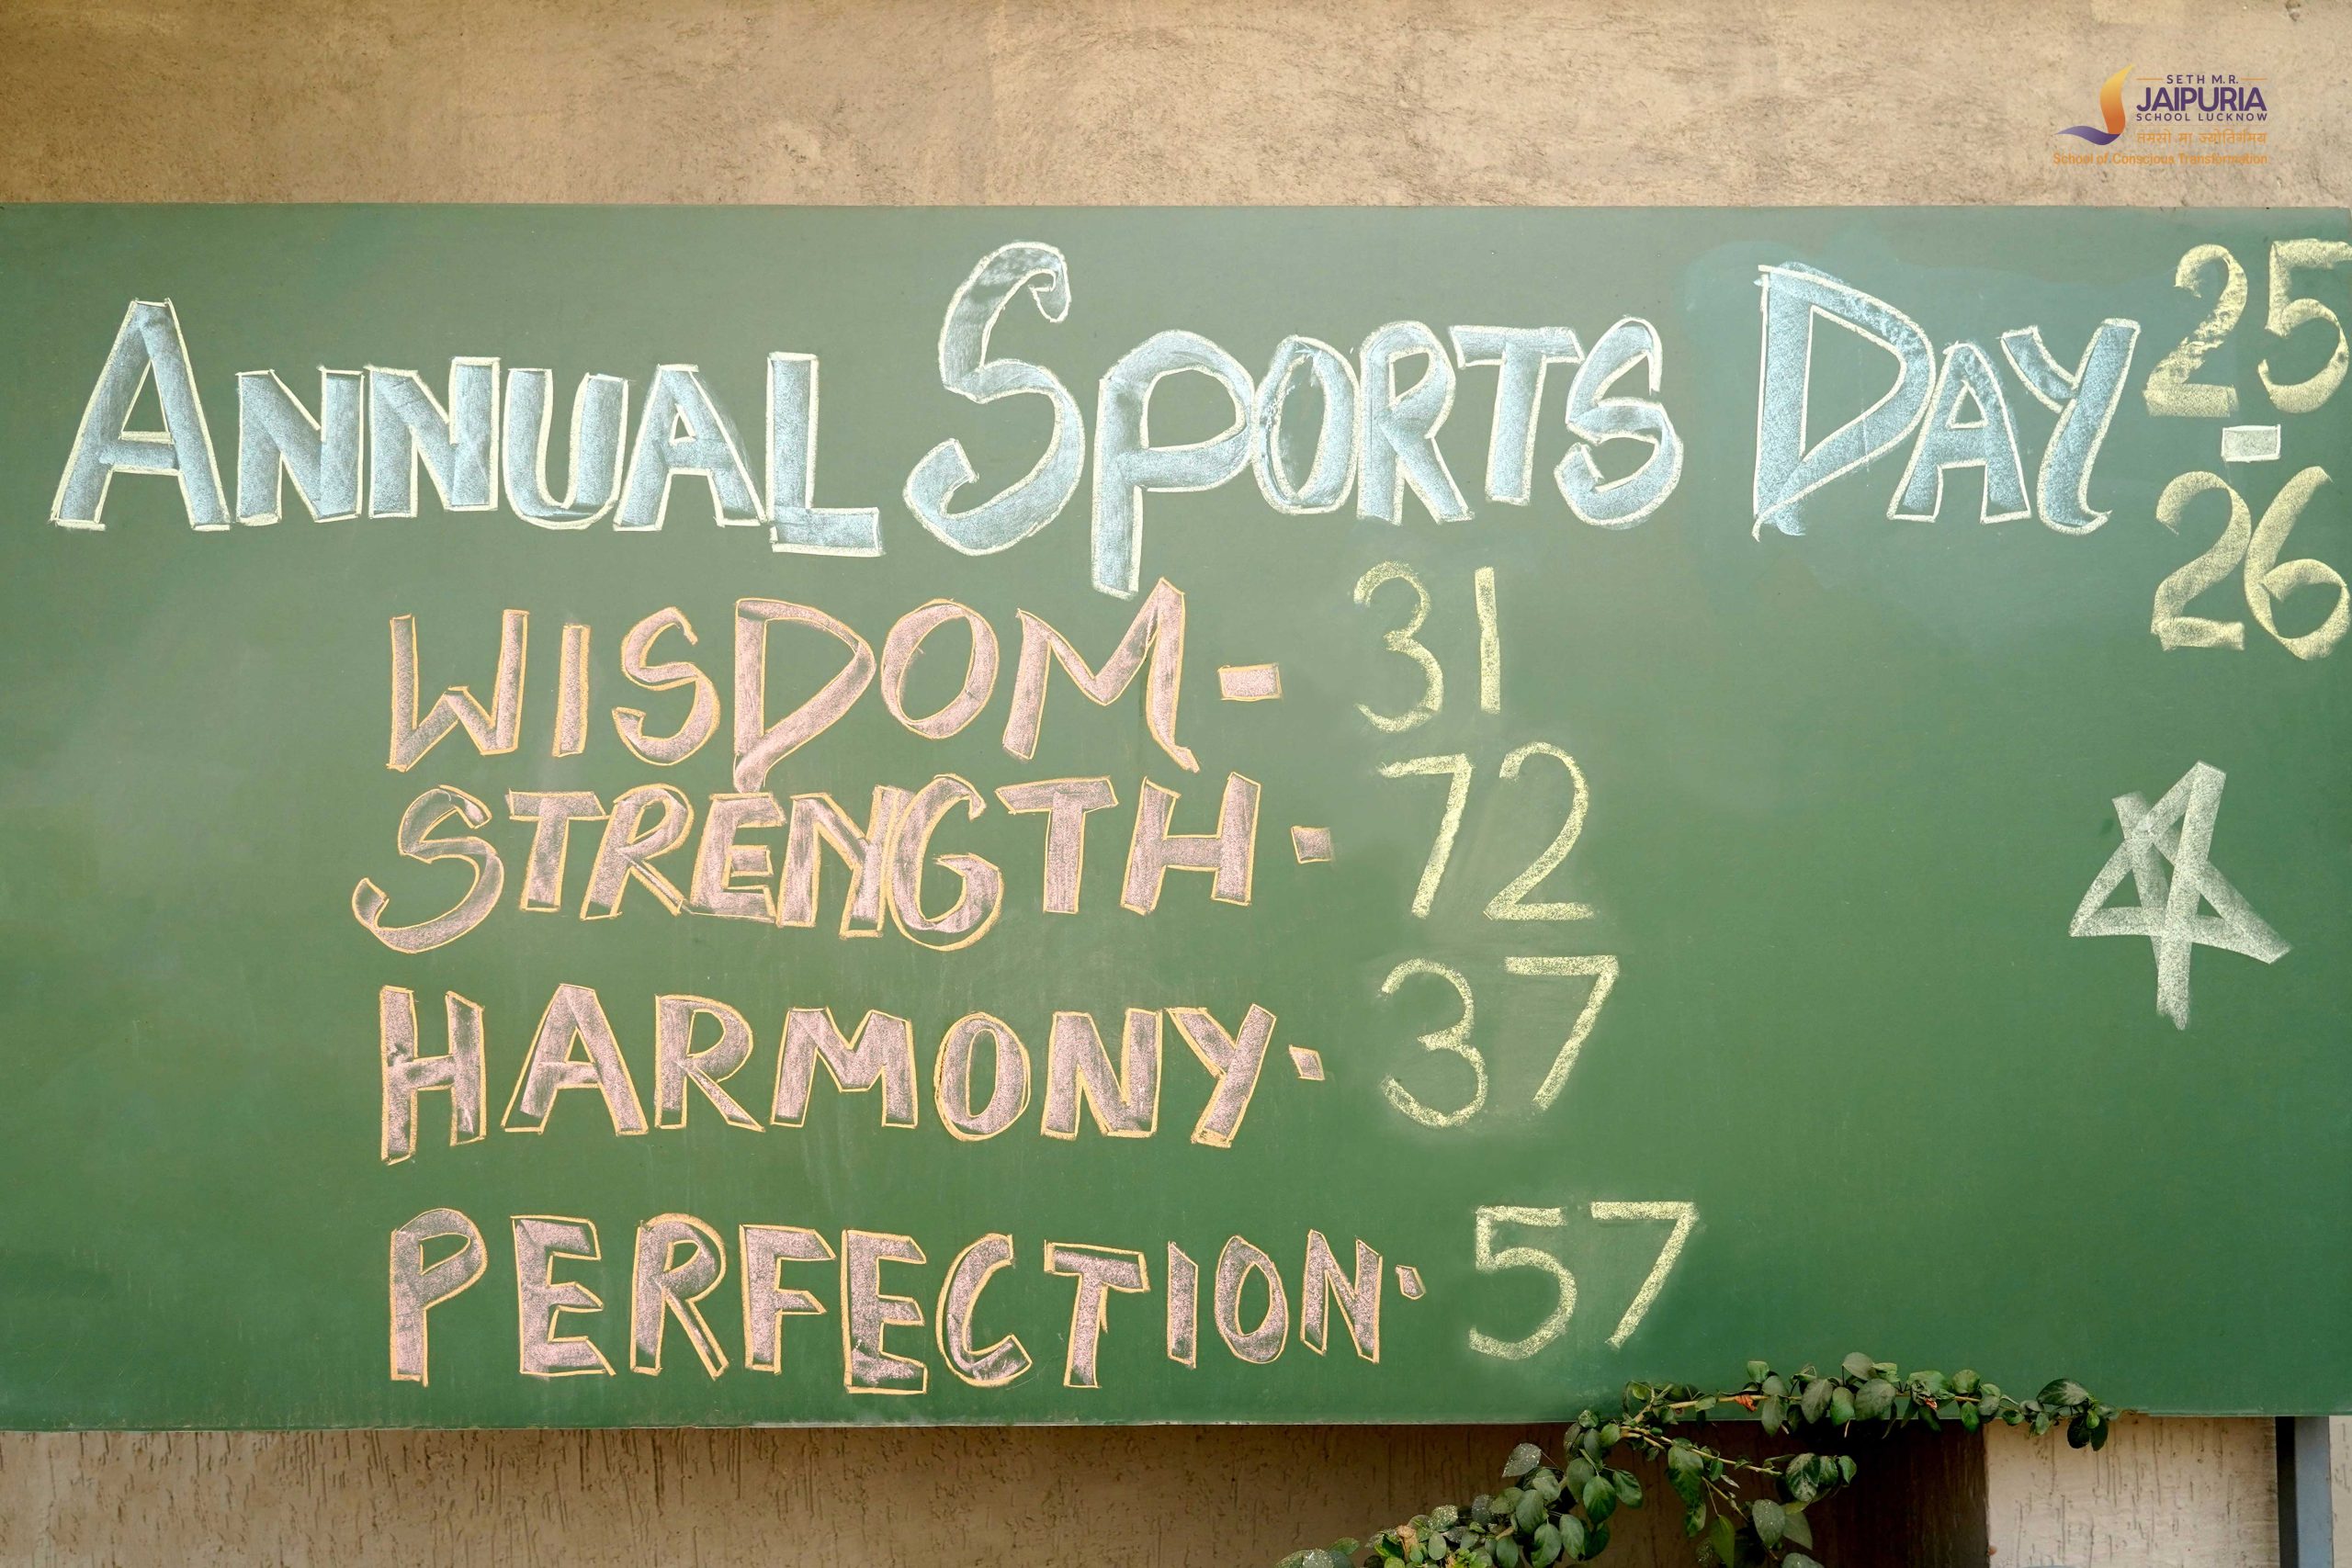 SETH M.R.
JAIPURIA
SCHOOL LUCKNOW
तमसो मा ज्योतिर्गमय
School of Conscious Transformation
ANNUAL SPORTS DAY 25-26
WISDOM- 31
STRENGTH- 72
HARMONY- 37
PERFECTION- 57